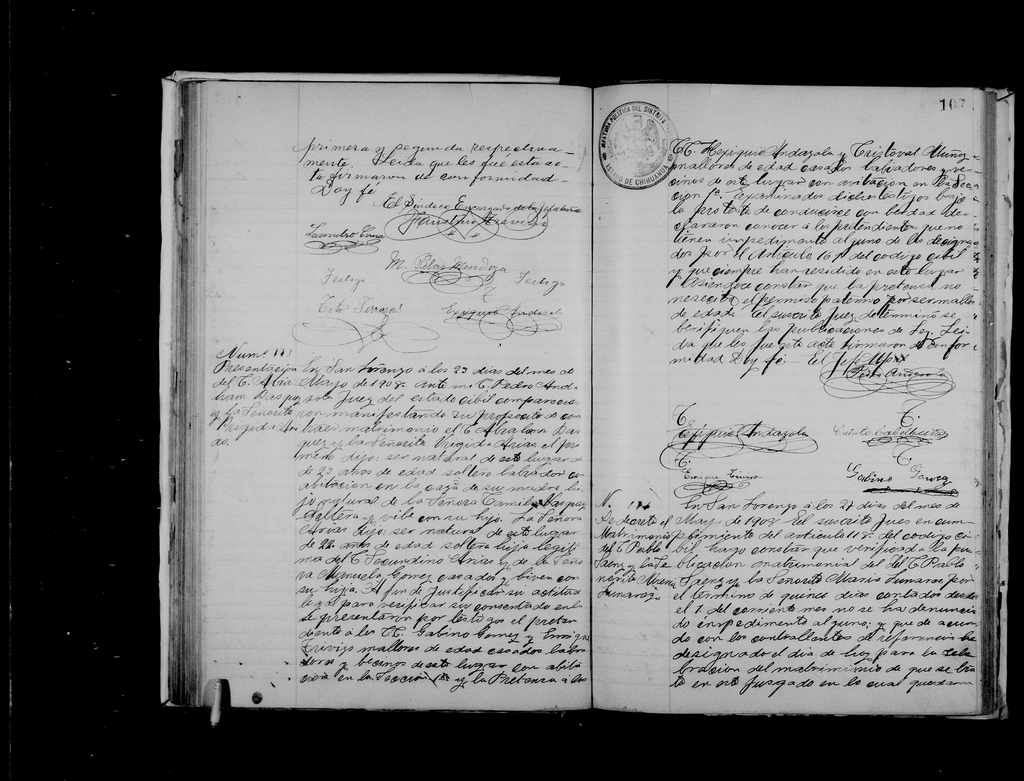 primera y segunda respectiva-
mente. Leida que les fué esta ac-
ta firmaron de conformidad-
Doy fé
El Síndico Encargado de la Jefatura
Leandro
M. Pilar Mendoza
Testigo Testigo
Tito Terrazas
Num. 111
Presentación
del C. Abra
ham Vasquez
y la Señorita
Brigida Ari
as.
En San Lorenzo á los 23 dias del mes de
Mayo de 1908. Ante mi C. Pedro And
Juez del estado cibil comparecie
ron manifestando su proposito de con
traer matrimonio el C. Abraham Bas
quez y la Señorita Brigida Arias el pri
mero dijo: ser natural de este lugar
de 23 años de edad soltero labrador co
abitacion en la casa de su madre hi
jo natural de la Señora Camila Vasquez
soltera y vibe con su hijo. La Señora
Arias dijo: ser natural de este lugar
de 22 años de edad soltera hija legiti
ma del C. Secundino Arias y de la Seño
ra Manuela Gomez casados y biven con
su hija. A fin de justificar su actitud
legal para verificar su consentado enla
se presentaron por testigos el preten
diente á los CC. Gabino Gomez y Enrique
Trevizo mallores de edad casados labra
dores y becinos de este lugar con abita
cion en la Seccion 1ª y la Pretensa á los
107
JEFATURA POLITICA DEL DISTRITO
ESTADO DE CHIHUAHUA
CC. Mexiquio Andazola y Cristoval Muñoz
mallores de edad casados labradores y ve-
cinos de este lugar con avitacion en la Sec
cion 1ª. Examinados dichos testigos bajo
la protesta de conducirse con berdad de
clararon conocer á los pretendientes que no
tienen impedimento alguno de los designa
dos por el Articulo 161 del codigo cibil
y que ciempre han residido en este lugar
Asiendose constar que la pretensa no
nesecita el permiso paterno por ser mallor
de edad El suscrito Juez determinó se
berifiquen las publicaciones de Ley. Lei
da que les fué esta acta firmaron de confor
midad Doy fé. El Juez
Pedro
C. C.
Andazola
C. C.
Enrique Gabino Gomez
N.
Se decreta el
Matrimonio
del C. Pablo
Saenz y la Se
ñorita Maria
Lunaraz
En San Lorenzo á los 27 dias del mes de
Mayo de 1908 El suscrito Jues en cum-
plimiento del articulo 118. del codigo ci-
bil hago constar que verificada la pu-
blicacion matrimonial del C. Pablo
Saenz y la Señorita Maria Lunaraz por
el termino de quince dias contados desde
el 7. del corriente mes no se ha denuncia
do impedimento alguno; y que de acuer
do con los contrallentes de referencia he
designado el dia de hoy para la cele
bracion del matrimonio de que se tra
ta en este Juzgado en lo cual quedaron